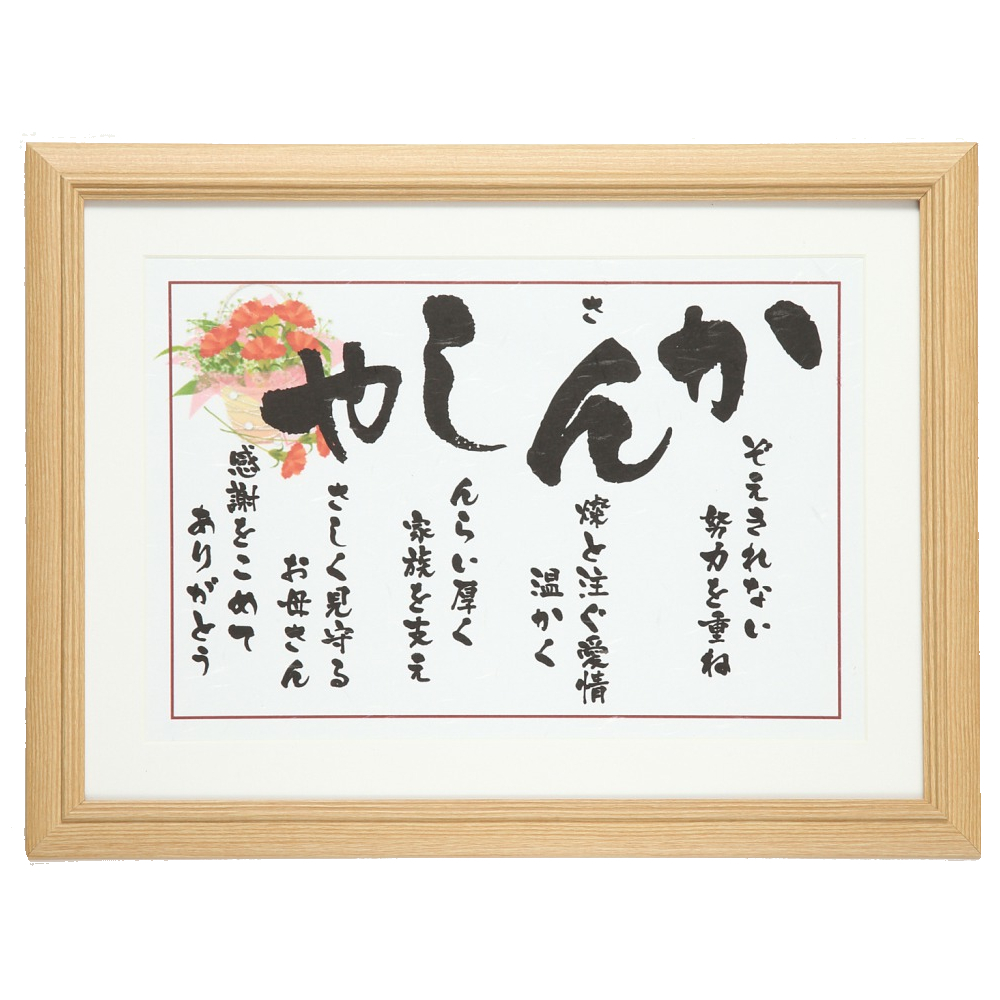 か
ぞえきれない
努力を重ね
さ
ん
燦と注ぐ愛情
温かく
し
んらい厚く
家族を支え
や
さしく見守る
お母さん
感謝をこめて
ありがとう